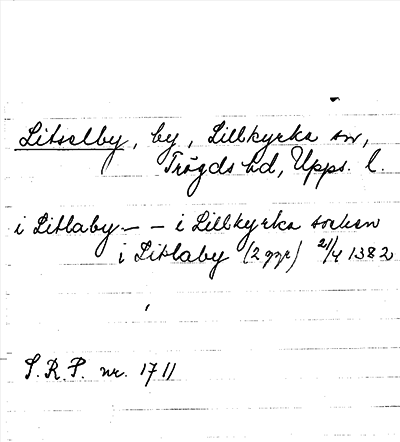 Litselby, by, Lillkyrka sn,
Trögds hd, Upps. l.
i Litlaby – – i Lillkyrka socken
i Litlaby (2 ggr) 21/4 1382
S.R.P. nr. 1711